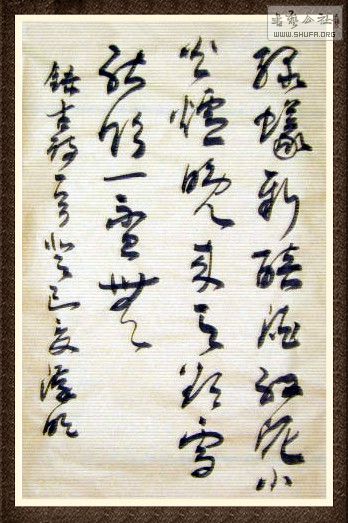 綠蟻新醅酒紅泥小
火爐晚來天欲雪
能飲一盃無
錄古詩一首癸巳夏
书艺公社
WWW.SHUFA.ORG